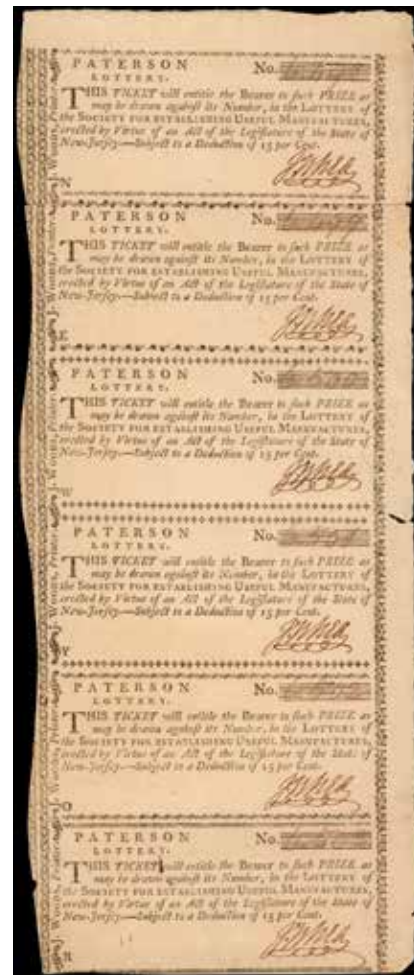 PATERSON No.
LOTTERY.
THIS TICKET will entitle the Bearer to such PRIZE as
may be drawn against its Number, in the LOTTERY of
the SOCIETY FOR ESTABLISHING USEFUL MANUFACTURES,
erected by Virtue of an Act of the Legislature of the State of
New-Jersey.—Subject to a Deduction of 15 per Cent.
N
PATERSON No.
LOTTERY.
THIS TICKET will entitle the Bearer to such PRIZE as
may be drawn against its Number, in the LOTTERY of
the SOCIETY FOR ESTABLISHING USEFUL MANUFACTURES,
erected by Virtue of an Act of the Legislature of the State of
New-Jersey.—Subject to a Deduction of 15 per Cent.
E
PATERSON No.
LOTTERY.
THIS TICKET will entitle the Bearer to such PRIZE as
may be drawn against its Number, in the LOTTERY of
the SOCIETY FOR ESTABLISHING USEFUL MANUFACTURES,
erected by Virtue of an Act of the Legislature of the State of
New-Jersey.—Subject to a Deduction of 15 per Cent.
W
PATERSON No.
LOTTERY.
THIS TICKET will entitle the Bearer to such PRIZE as
may be drawn against its Number, in the LOTTERY of
the SOCIETY FOR ESTABLISHING USEFUL MANUFACTURES,
erected by Virtue of an Act of the Legislature of the State of
New-Jersey.—Subject to a Deduction of 15 per Cent.
Y
PATERSON No.
LOTTERY.
THIS TICKET will entitle the Bearer to such PRIZE as
may be drawn against its Number, in the LOTTERY of
the SOCIETY FOR ESTABLISHING USEFUL MANUFACTURES,
erected by Virtue of an Act of the Legislature of the State of
New-Jersey.—Subject to a Deduction of 15 per Cent.
O
PATERSON No.
LOTTERY.
THIS TICKET will entitle the Bearer to such PRIZE as
may be drawn against its Number, in the LOTTERY of
the SOCIETY FOR ESTABLISHING USEFUL MANUFACTURES,
erected by Virtue of an Act of the Legislature of the State of
New-Jersey.—Subject to a Deduction of 15 per Cent.
R